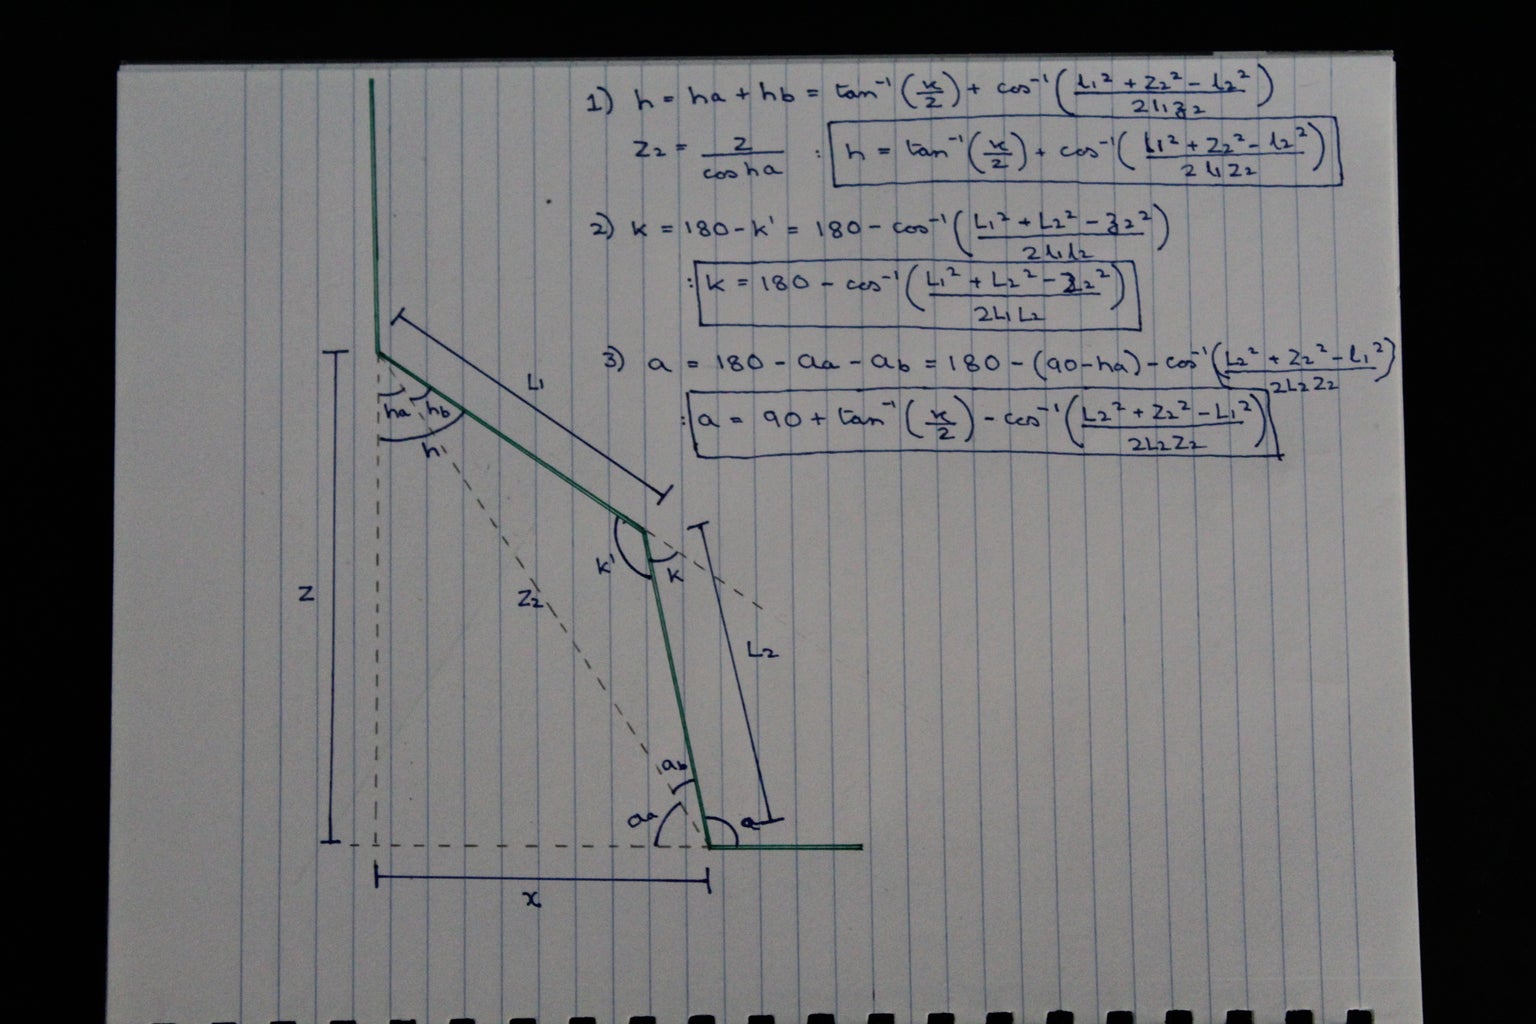 1) h = ha + hb = tan⁻¹(x/2) + cos⁻¹((l₁² + Z₂² - l₂²)/(2l₁z₂))
Z₂ = Z/(cos ha) : h = tan⁻¹(x/2) + cos⁻¹((l₁² + Z₂² - l₂²)/(2l₁Z₂))
2) k = 180 - k' = 180 - cos⁻¹((L₁² + L₂² - z₂²)/(2l₁l₂))
: k = 180 - cos⁻¹((L₁² + L₂² - Z₂²)/(2L₁L₂))
3) a = 180 - aa - ab = 180 - (90 - ha) - cos⁻¹((L₂² + Z₂² - l₁²)/(2L₂Z₂))
: a = 90 + tan⁻¹(x/2) - cos⁻¹((L₂² + Z₂² - L₁²)/(2L₂Z₂))
L₁
ha hb
h
k' k
Z
Z₂
L₂
ab
aa a
x